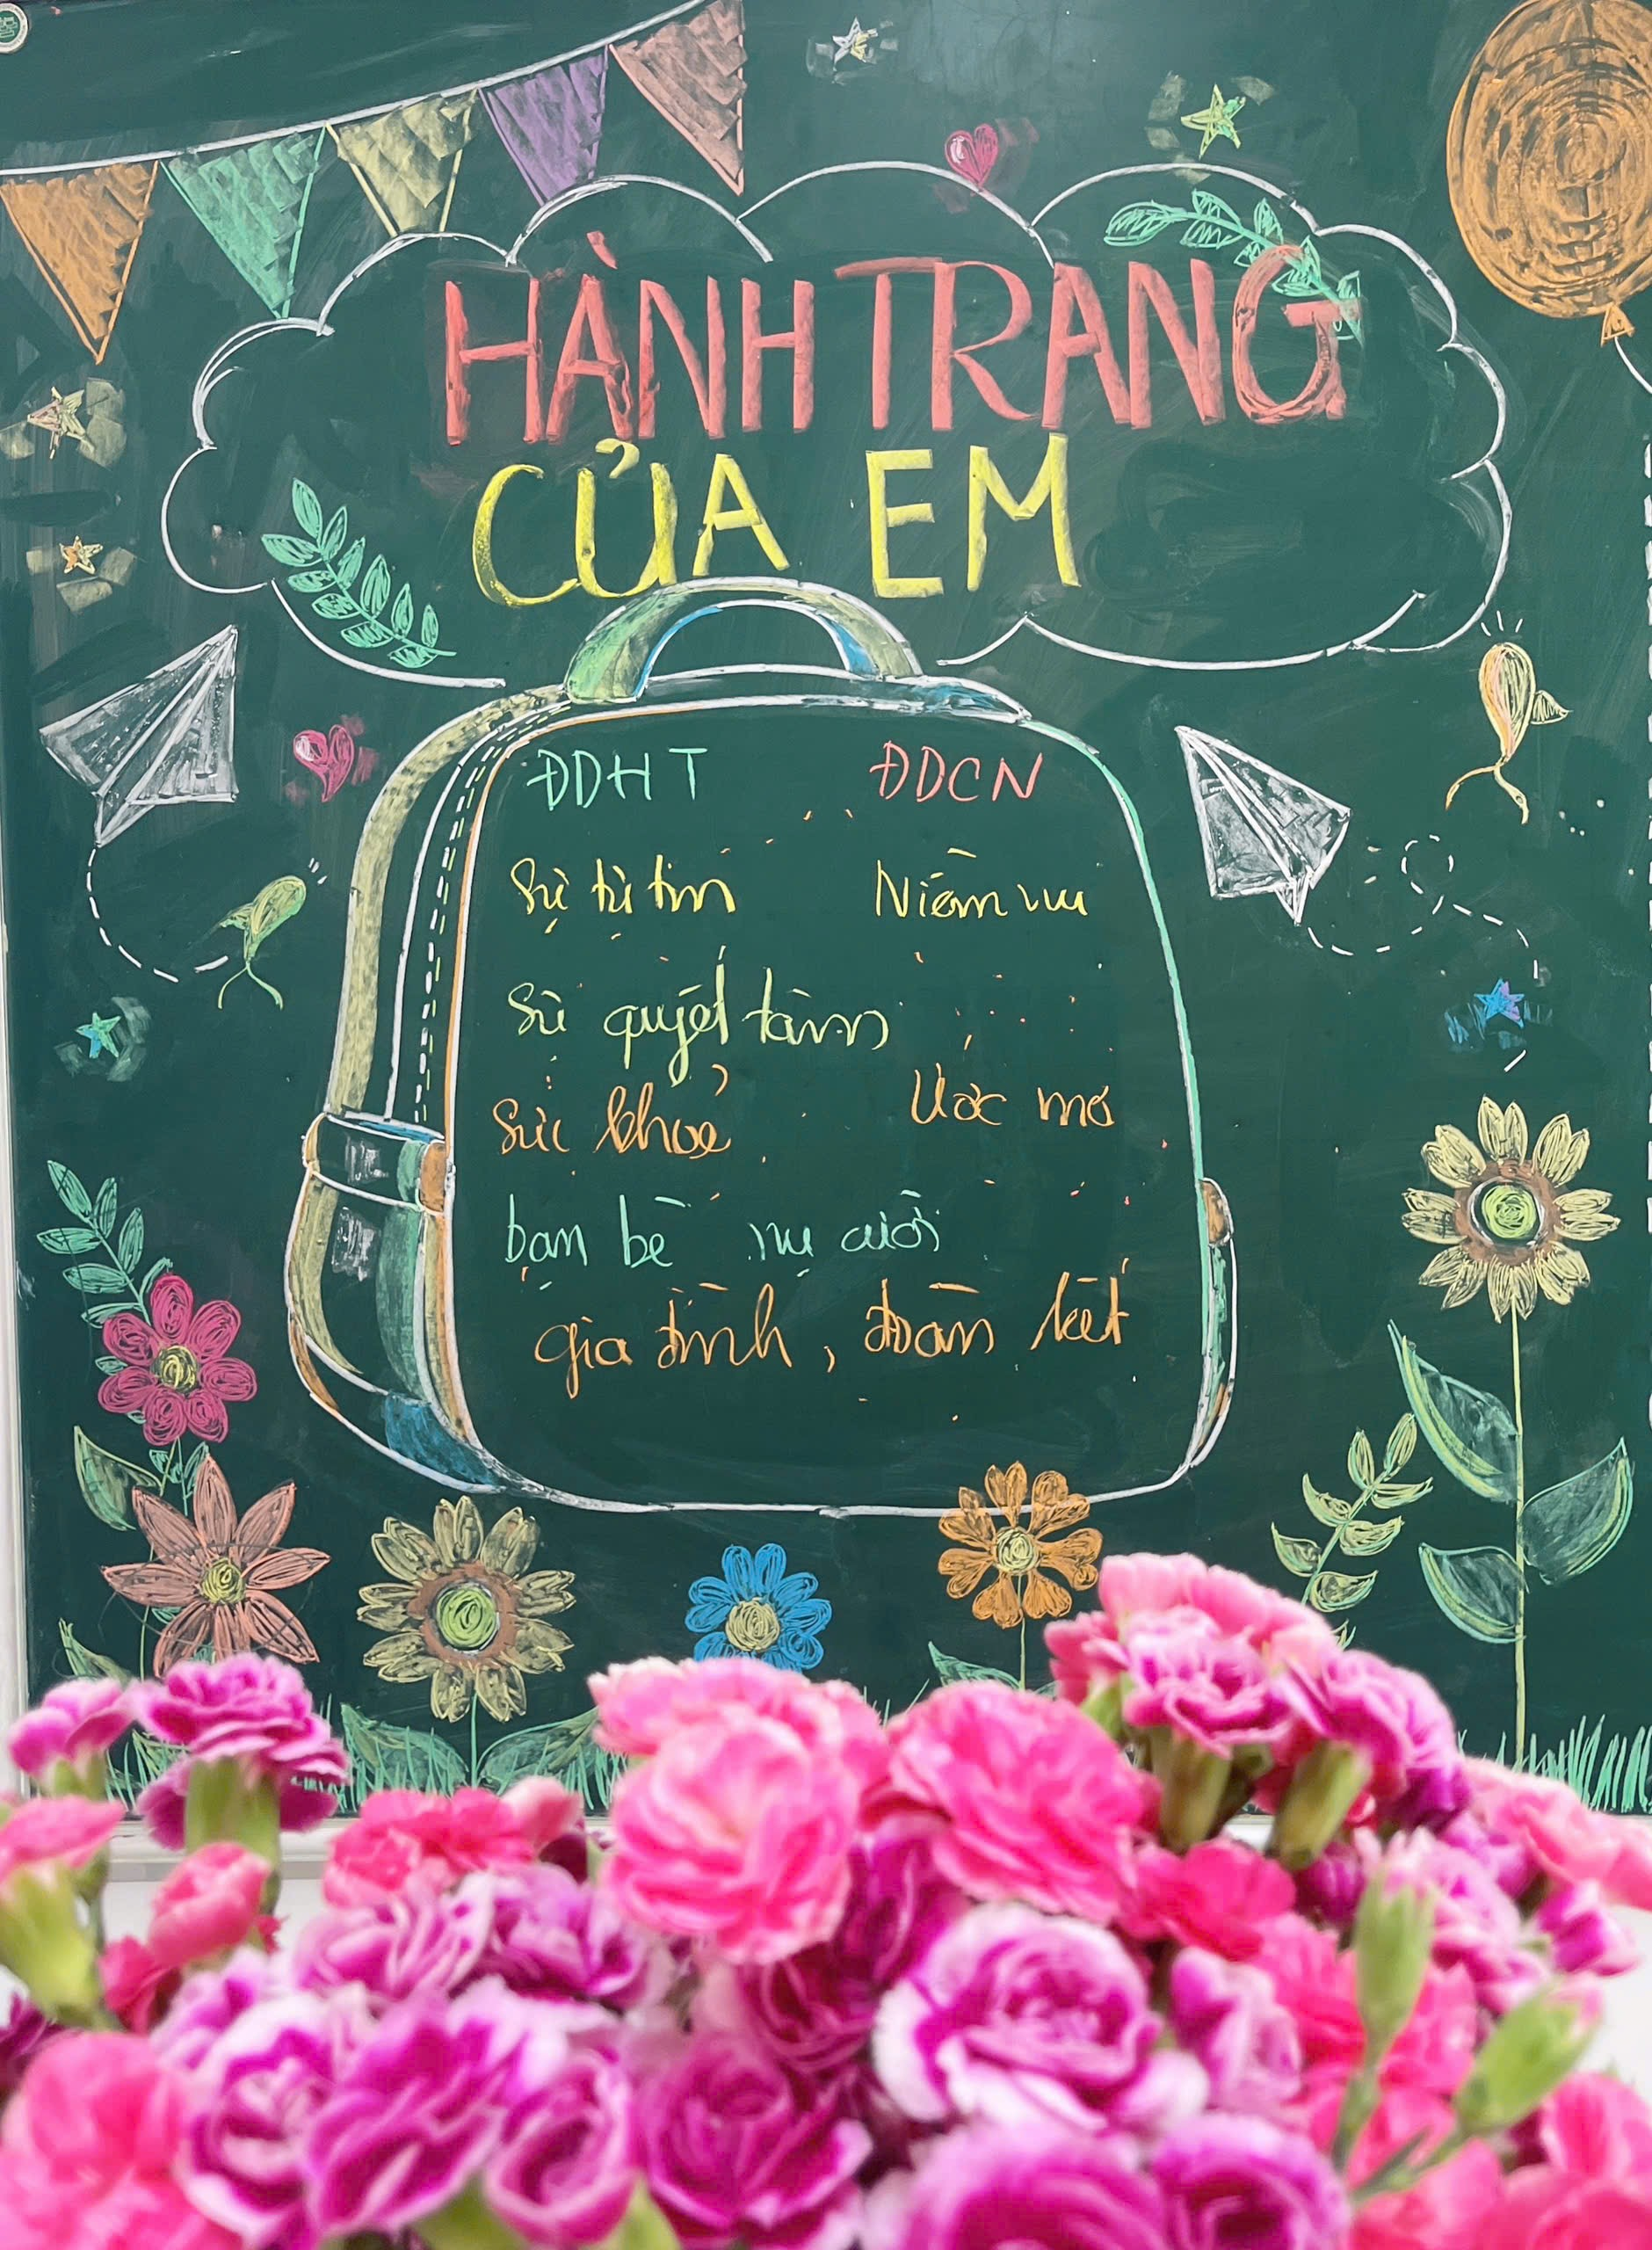 HÀNH TRANG
CỦA EM
ĐDHT ĐDCN
Sự tự tin Niềm vui
Sự quyết tâm
Sức khoẻ Ước mơ
bạn bè nụ cười
gia đình, đoàn kết